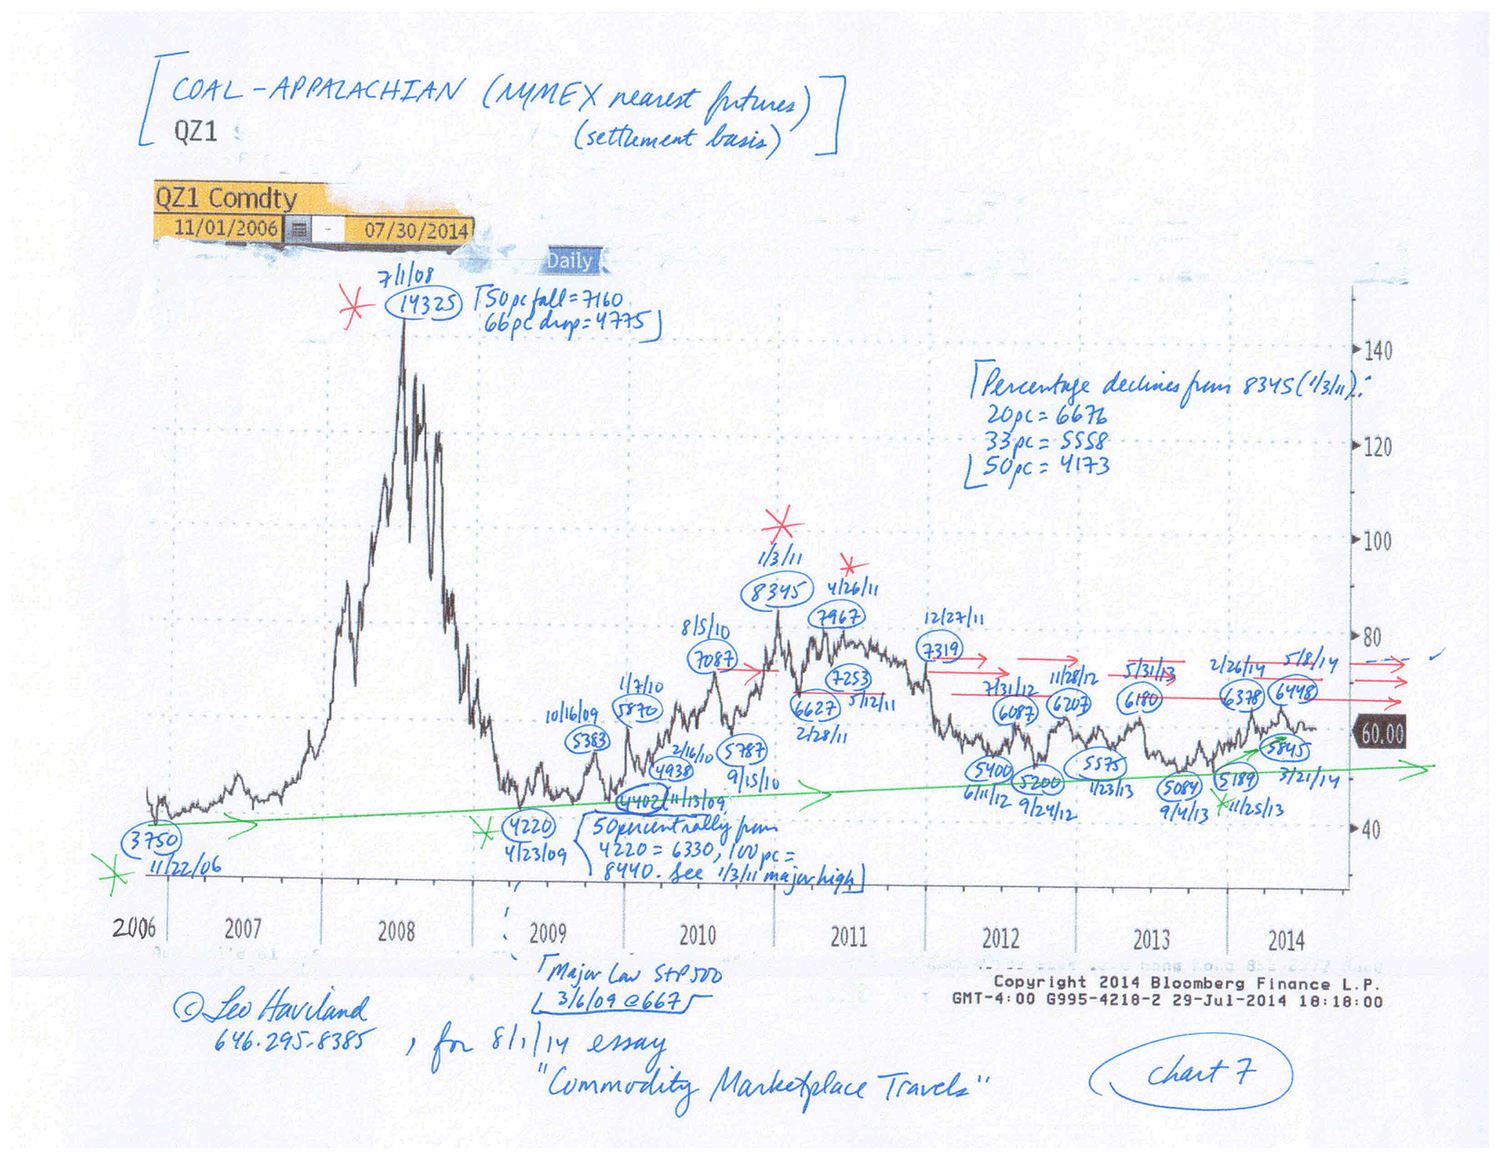 COAL-APPALACHIAN (NYMEX nearest futures)
QZ1 (settlement basis)
QZ1 Comdty
11/01/2006 - 07/30/2014
Daily
7/1/08
14325
50pc fall = 7160
66pc drop = 4775
140
Percentage declines from 8345 (1/3/11):
20pc = 6676
33pc = 5558
50pc = 4173
120
100
1/3/11
8345
4/26/11
7967
12/27/11
7319
80
8/5/10
7087
7253
5/12/11
6627
2/28/11
1/7/10
5870
10/16/09
5383
2/16/10
4938
5787
9/15/10
7/31/12
6087
11/28/12
6207
5/31/13
6180
2/26/14
6378
5/8/14
6448
60.00
5400
6/11/12
5200
9/24/12
5575
1/23/13
5084
9/4/13
5189
11/25/13
5845
3/21/14
4402 11/13/09
40
3750
11/22/06
4220
4/23/09
50 percent rally from
4220 = 6330, 100pc =
8440. See 1/3/11 major high
2006 2007 2008 2009 2010 2011 2012 2013 2014
Major Low S+P 500
3/6/09 @ 667
Copyright 2014 Bloomberg Finance L.P.
GMT-4:00 G995-4218-2 29-Jul-2014 18:18:00
© Leo Haviland
646.295.8385 , for 8/1/14 essay
"Commodity Marketplace Travels"
chart 7